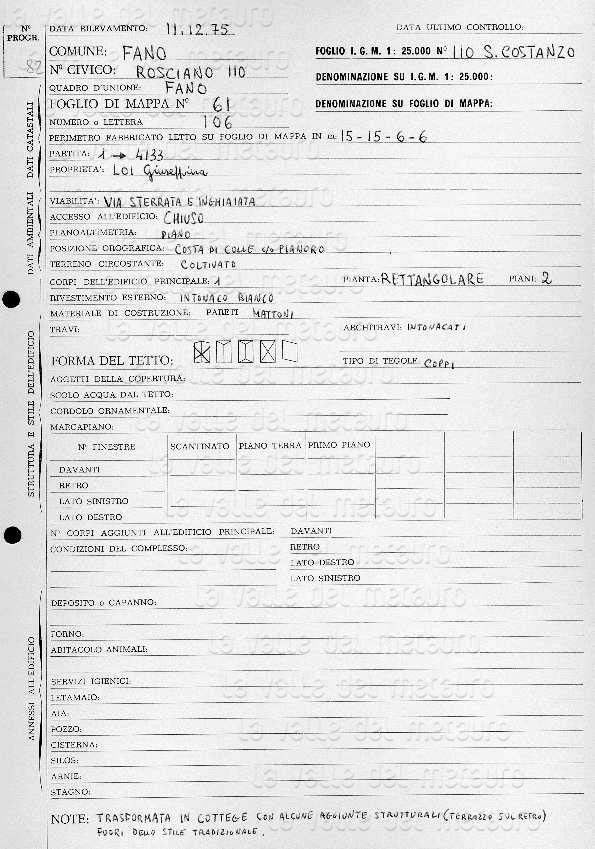 N° PROGR.
82
DATA RILEVAMENTO: 11.12.75 DATA ULTIMO CONTROLLO:
COMUNE: FANO FOGLIO I.G.M. 1: 25.000 N° 110 S. COSTANZO
N° CIVICO: ROSCIANO 110 DENOMINAZIONE SU I.G.M. 1: 25.000:
QUADRO D'UNIONE: FANO
FOGLIO DI MAPPA N° 61 DENOMINAZIONE SU FOGLIO DI MAPPA:
NUMERO o LETTERA 106
PERIMETRO FABBRICATO LETTO SU FOGLIO DI MAPPA IN m 15-15-6-6
PARTITA: 1 → 4133
PROPRIETA': LOI Giuseppina
VIABILITA': VIA STERRATA E INGHIAIATA
ACCESSO ALL'EDIFICIO: CHIUSO
PLANOALTIMETRIA: PIANO
POSIZIONE OROGRAFICA: COSTA DI COLLE C/O PIANORO
TERRENO CIRCOSTANTE: COLTIVATO
DATI AMBIENTALI DATI CATASTALI
CORPI DELL'EDIFICIO PRINCIPALE: 1 PIANTA: RETTANGOLARE PIANI: 2
RIVESTIMENTO ESTERNO: INTONACO BIANCO
MATERIALE DI COSTRUZIONE: PARETI MATTONI
TRAVI: ARCHITRAVI: INTONACATI
FORMA DEL TETTO: TIPO DI TEGOLE: COPPI
AGGETTI DELLA COPERTURA:
SCOLO ACQUA DAL TETTO:
CORDOLO ORNAMENTALE:
MARCAPIANO:
N° FINESTRE SCANTINATO PIANO TERRA PRIMO PIANO
DAVANTI
RETRO
LATO SINISTRO
LATO DESTRO
N° CORPI AGGIUNTI ALL'EDIFICIO PRINCIPALE: DAVANTI
CONDIZIONI DEL COMPLESSO: RETRO
LATO DESTRO
LATO SINISTRO
STRUTTURA E STILE DELL'EDIFICIO
DEPOSITO o CAPANNO:
FORNO:
ABITACOLO ANIMALI:
SERVIZI IGIENICI:
LETAMAIO:
AIA:
POZZO:
CISTERNA:
SILOS:
ARNIE:
STAGNO:
ANNESSI ALL'EDIFICIO
NOTE: TRASFORMATA IN COTTEGE CON ALCUNE AGGIUNTE STRUTTURALI (TERRAZZO SUL RETRO)
FUORI DELLO STILE TRADIZIONALE.
La valle del metauro